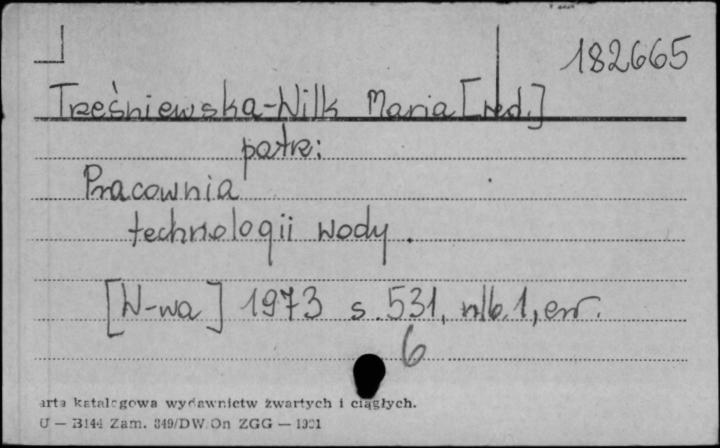 182665
Treśniewska-Wilk Maria [red.]
patrz:
Pracownia
technologii wody.
[W-wa] 1973 s. 531, nlb. 1, err.
6
arta katalogowa wydawnictw zwartych i ciągłych.
U — B144 Zam. 849/DW/On ZGG — 1951